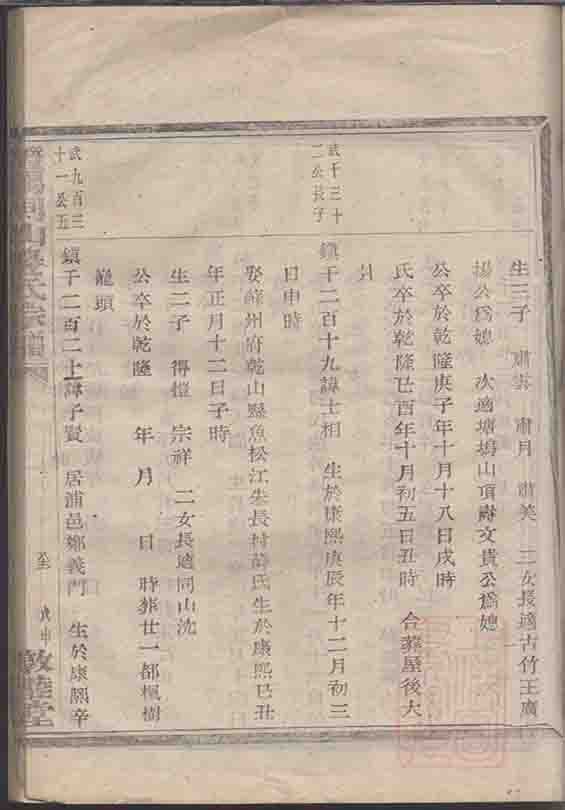 生三子 肅雲 肅月 肅美 三女長適古竹王廣
揚公爲媳 次適塘塢山頂 文貴公爲媳
公卒於乾隆庚子年十月十八日戌時
氏卒於乾隆己酉年十月初五日丑時 合葬屋後大
武千三十
二公長子
鎮千二百十九諱士相 生於康熙庚辰年十二月初三
日申時
娶蘇州府乾山縣魚松江朱長村薛氏生於康熙己丑
年正月十二日子時
生二子 得愷 宗祥 二女長適同山沈
公卒於乾隆 年 月 日 時葬廿一都楓樹
龍頭
武九百三
十一公五
鎮千二百二十諱子賢 居浦邑鄭義門 生於康熙辛
氏宗譜
戊申
敦睦堂